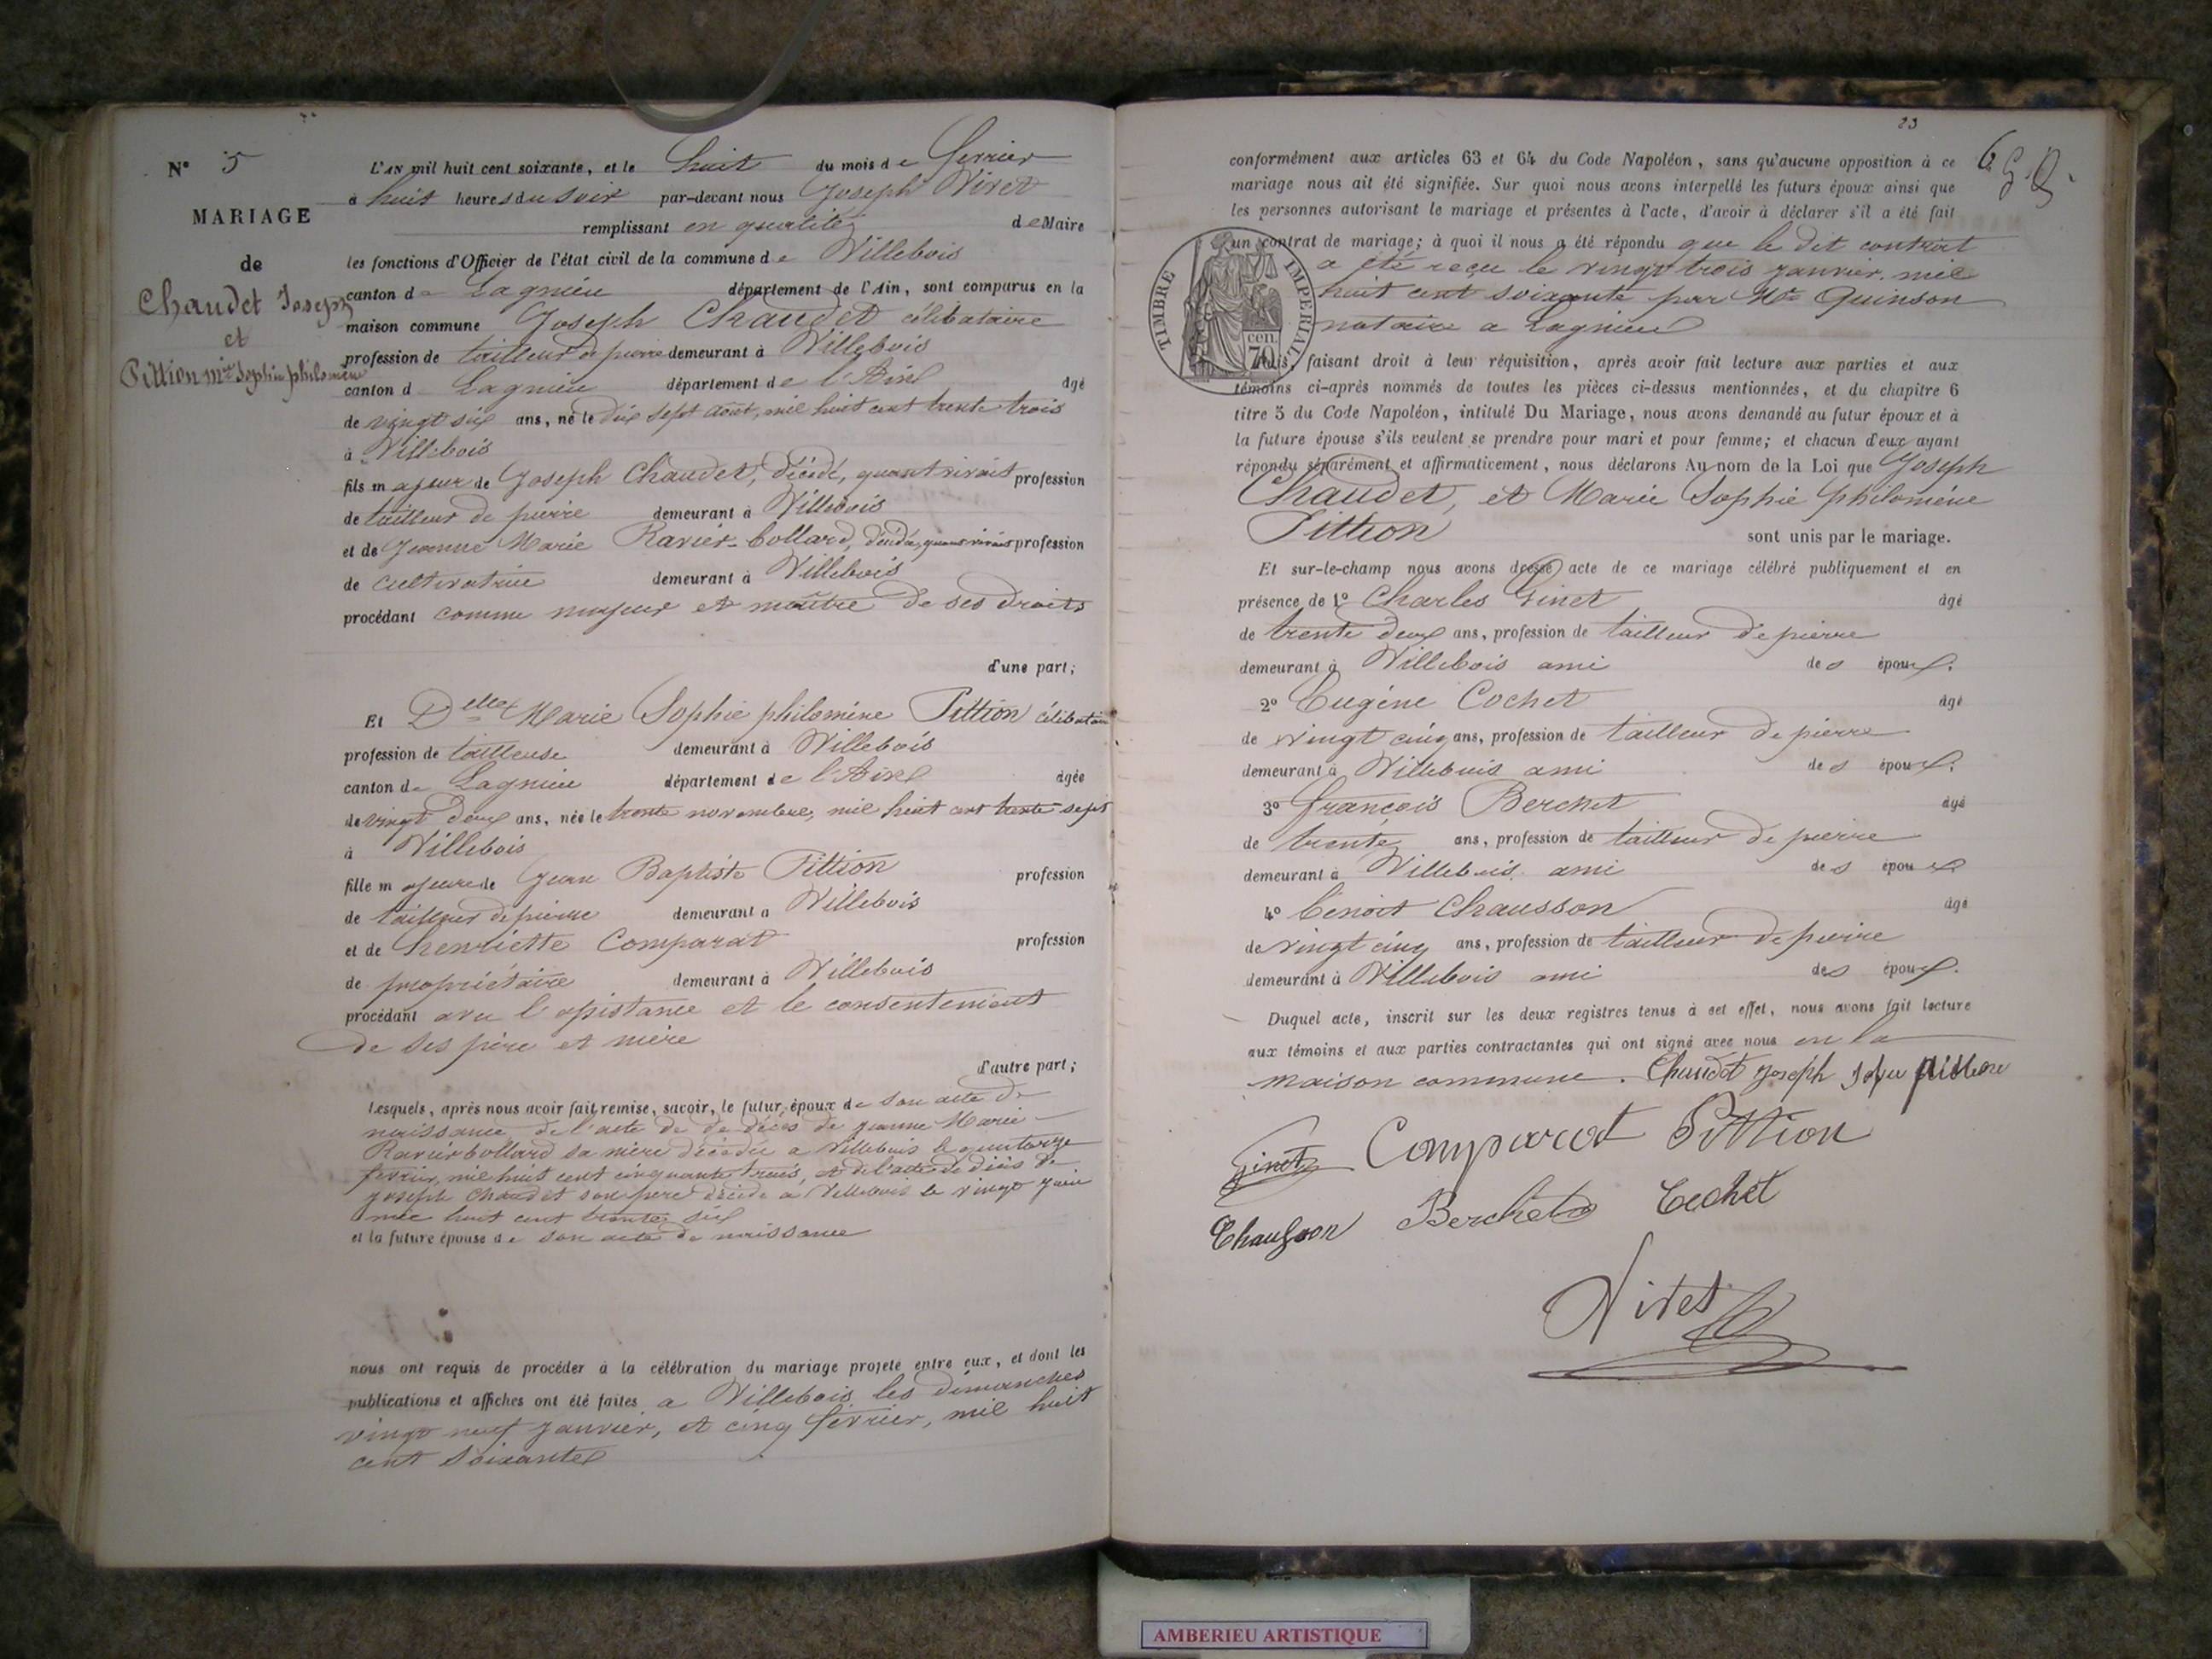 N° 5
MARIAGE
de
Chaudet Joseph
et
Pittion Mie Sophie philomène
L'AN mil huit cent soixante, et le huit du mois de fevrier
à huit heures du soir par-devant nous Joseph Vivet
remplissant en qualité de Maire
les fonctions d'Officier de l'état civil de la commune de Villebois
canton de Lagnieu département de l'Ain, sont comparus en la
maison commune Joseph Chaudet célibataire
profession de tailleur de pierre demeurant à Villebois
canton d Lagnieu département de l'Ain âgé
de vingt six ans, né le dix sept août, mil huit cent trente trois
à Villebois
fils majeur de Joseph Chaudet, décédé, quant vivait profession
de tailleur de pierre demeurant à Villebois
et de Jeanne Marie Ravier-bollard, décédée, quant vivait profession
de cultivatrice demeurant à Villebois
procédant comme majeur et maître de ses droits
d'une part;
Et Delle Marie Sophie philomène Pittion célibataire
profession de tailleuse demeurant à Villebois
canton de Lagnieu département de l'Ain âgée
de vingt deux ans, née le trente novembre, mil huit cent trente sept
à Villebois
fille majeure de Jean Baptiste Pittion profession
de tailleur de pierre demeurant à Villebois
et de henriette Comparat profession
de propriétaire demeurant à Villebois
procédant avec l'assistance et le consentement
de ses père et mère
d'autre part;
Lesquels, après nous avoir fait remise, savoir, le futur époux de son acte de
naissance de l'acte de de décès de jeanne Marie
Ravier bollard sa mère décédée a Villebois le quatorze
fevrier, mil huit cent cinquante trois, et de l'acte de décès de
joseph chaudet son père décédé a Villebois le vingt juin
mil huit cent trente six
et la future épouse de son acte de naissance
nous ont requis de procéder à la célébration du mariage projeté entre eux, et dont les
publications et affiches ont été faites a Villebois les dimanches
vingt neuf janvier, et cinq fevrier, mil huit
cent soixante
23
conformément aux articles 63 et 64 du Code Napoléon, sans qu'aucune opposition à ce
mariage nous ait été signifiée. Sur quoi nous avons interpellé les futurs époux ainsi que
les personnes autorisant le mariage et présentes à l'acte, d'avoir à déclarer s'il a été fait
un contrat de mariage; à quoi il nous a été répondu que le dit contrat
a été reçu le vingt trois janvier mil
huit cent soixante par Me Quinson
notaire a Lagnieu
TIMBRE IMPERIAL
70 cen.
Mais, faisant droit à leur réquisition, après avoir fait lecture aux parties et aux
témoins ci-après nommés de toutes les pièces ci-dessus mentionnées, et du chapitre 6
titre 5 du Code Napoléon, intitulé Du Mariage, nous avons demandé au futur époux et à
la future épouse s'ils veulent se prendre pour mari et pour femme; et chacun d'eux ayant
répondu séparément et affirmativement, nous déclarons Au nom de la Loi que Joseph
Chaudet, et Marie Sophie philomène
Pittion sont unis par le mariage.
Et sur-le-champ nous avons dressé acte de ce mariage célébré publiquement et en
présence de 1° Charles Ginet âgé
de trente deux ans, profession de tailleur de pierre
demeurant à Villebois ami des époux.
2° Eugène Cochet âgé
de vingt cinq ans, profession de tailleur de pierre
demeurant à Villebois ami des époux.
3° françois Berchet âgé
de trente ans, profession de tailleur de pierre
demeurant à Villebois ami des époux
4° Benoit Chausson âgé
de vingt cinq ans, profession de tailleur de pierre
demeurant à Villebois ami des époux.
Duquel acte, inscrit sur les deux registres tenus à cet effet, nous avons fait lecture
aux témoins et aux parties contractantes qui ont signé avec nous en la
maison commune. Chaudet Joseph pittion
Ginet Comparat Pittion
Chausson Berchet Cochet
Vivet
AMBERIEU ARTISTIQUE